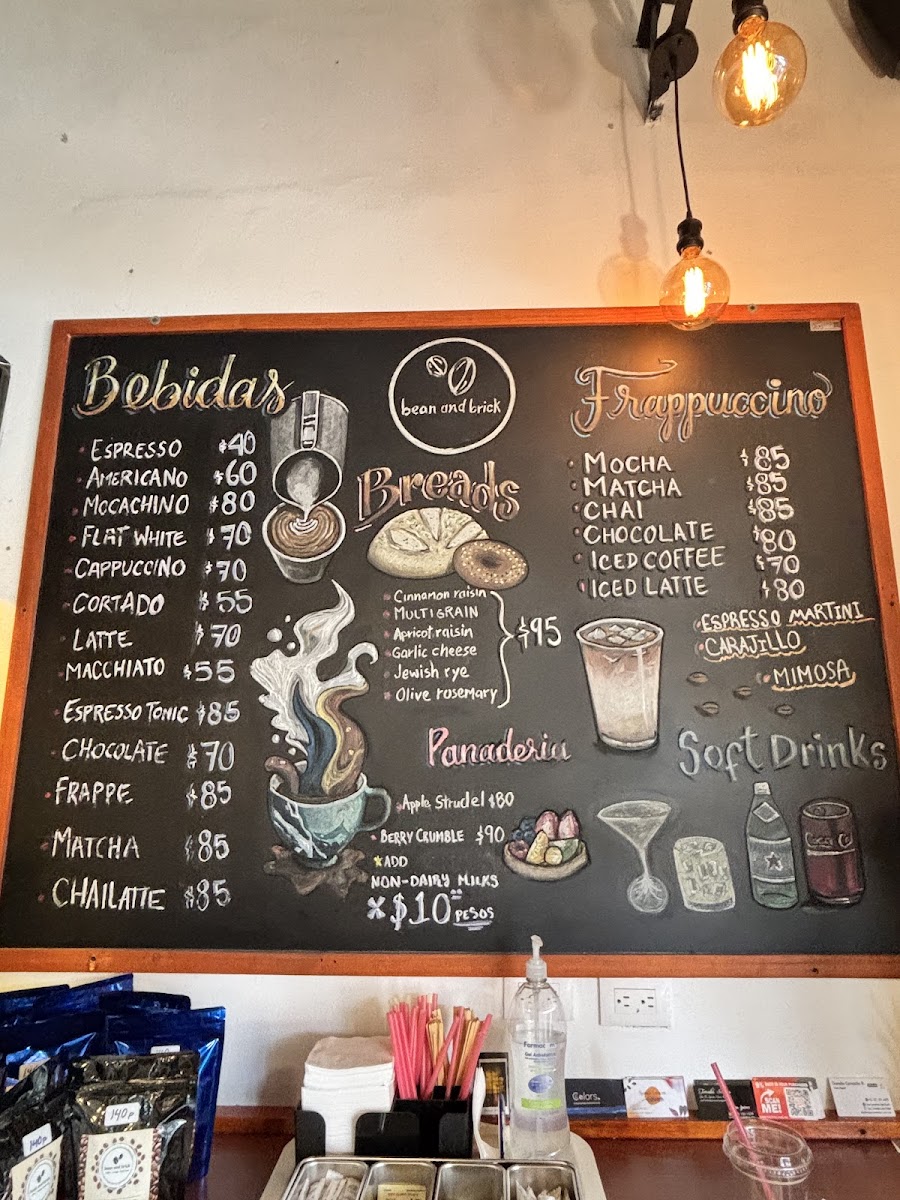 Bebidas
ESPRESSO $40
AMERICANO $60
MOCACHINO $80
FLAT WHITE $70
CAPPUCCINO $70
CORTADO $55
LATTE $70
MACCHIATO $55
ESPRESSO TONIC $85
CHOCOLATE $70
FRAPPE $85
MATCHA $85
CHAI LATTE $85
bean and brick
Breads
Cinnamon raisin
MULTIGRAIN
Apricot raisin
Garlic cheese
Jewish rye
Olive rosemary
$95
Panaderia
Apple Strudel $80
BERRY CRUMBLE $90
ADD
NON-DAIRY MILKS
x $10.00 PESOS
Frappuccino
MOCHA $85
MATCHA $85
CHAI $85
CHOCOLATE $80
ICED COFFEE $70
ICED LATTE $80
ESPRESSO MARTINI
CARAJILLO
MIMOSA
Soft Drinks
Coca Co
140p
bean and brick
Colors
SCAN
ME!